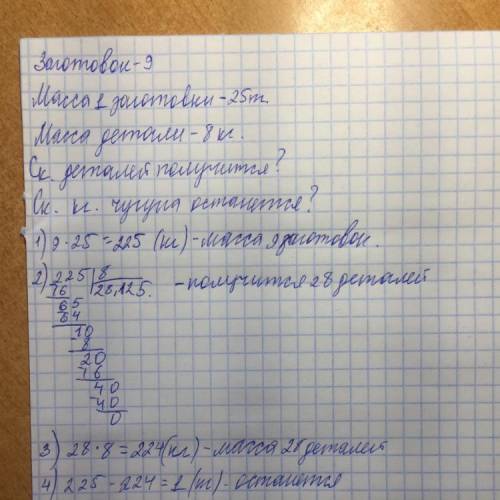 Заготовок - 9
Масса 1 заготовки - 25т.
Масса детали - 8 кг.
Ск. деталей получится?
Ск. кг. чугуна останется?
1) 9 · 25 = 225 (кг) - масса 9 заготовок.
2) 225 | 8
16 28,125. - получится 28 деталей
65
64
10
8
20
16
40
40
0
3) 28 · 8 = 224 (кг) - масса 28 деталей
4) 225 - 224 = 1 (кг) - останется